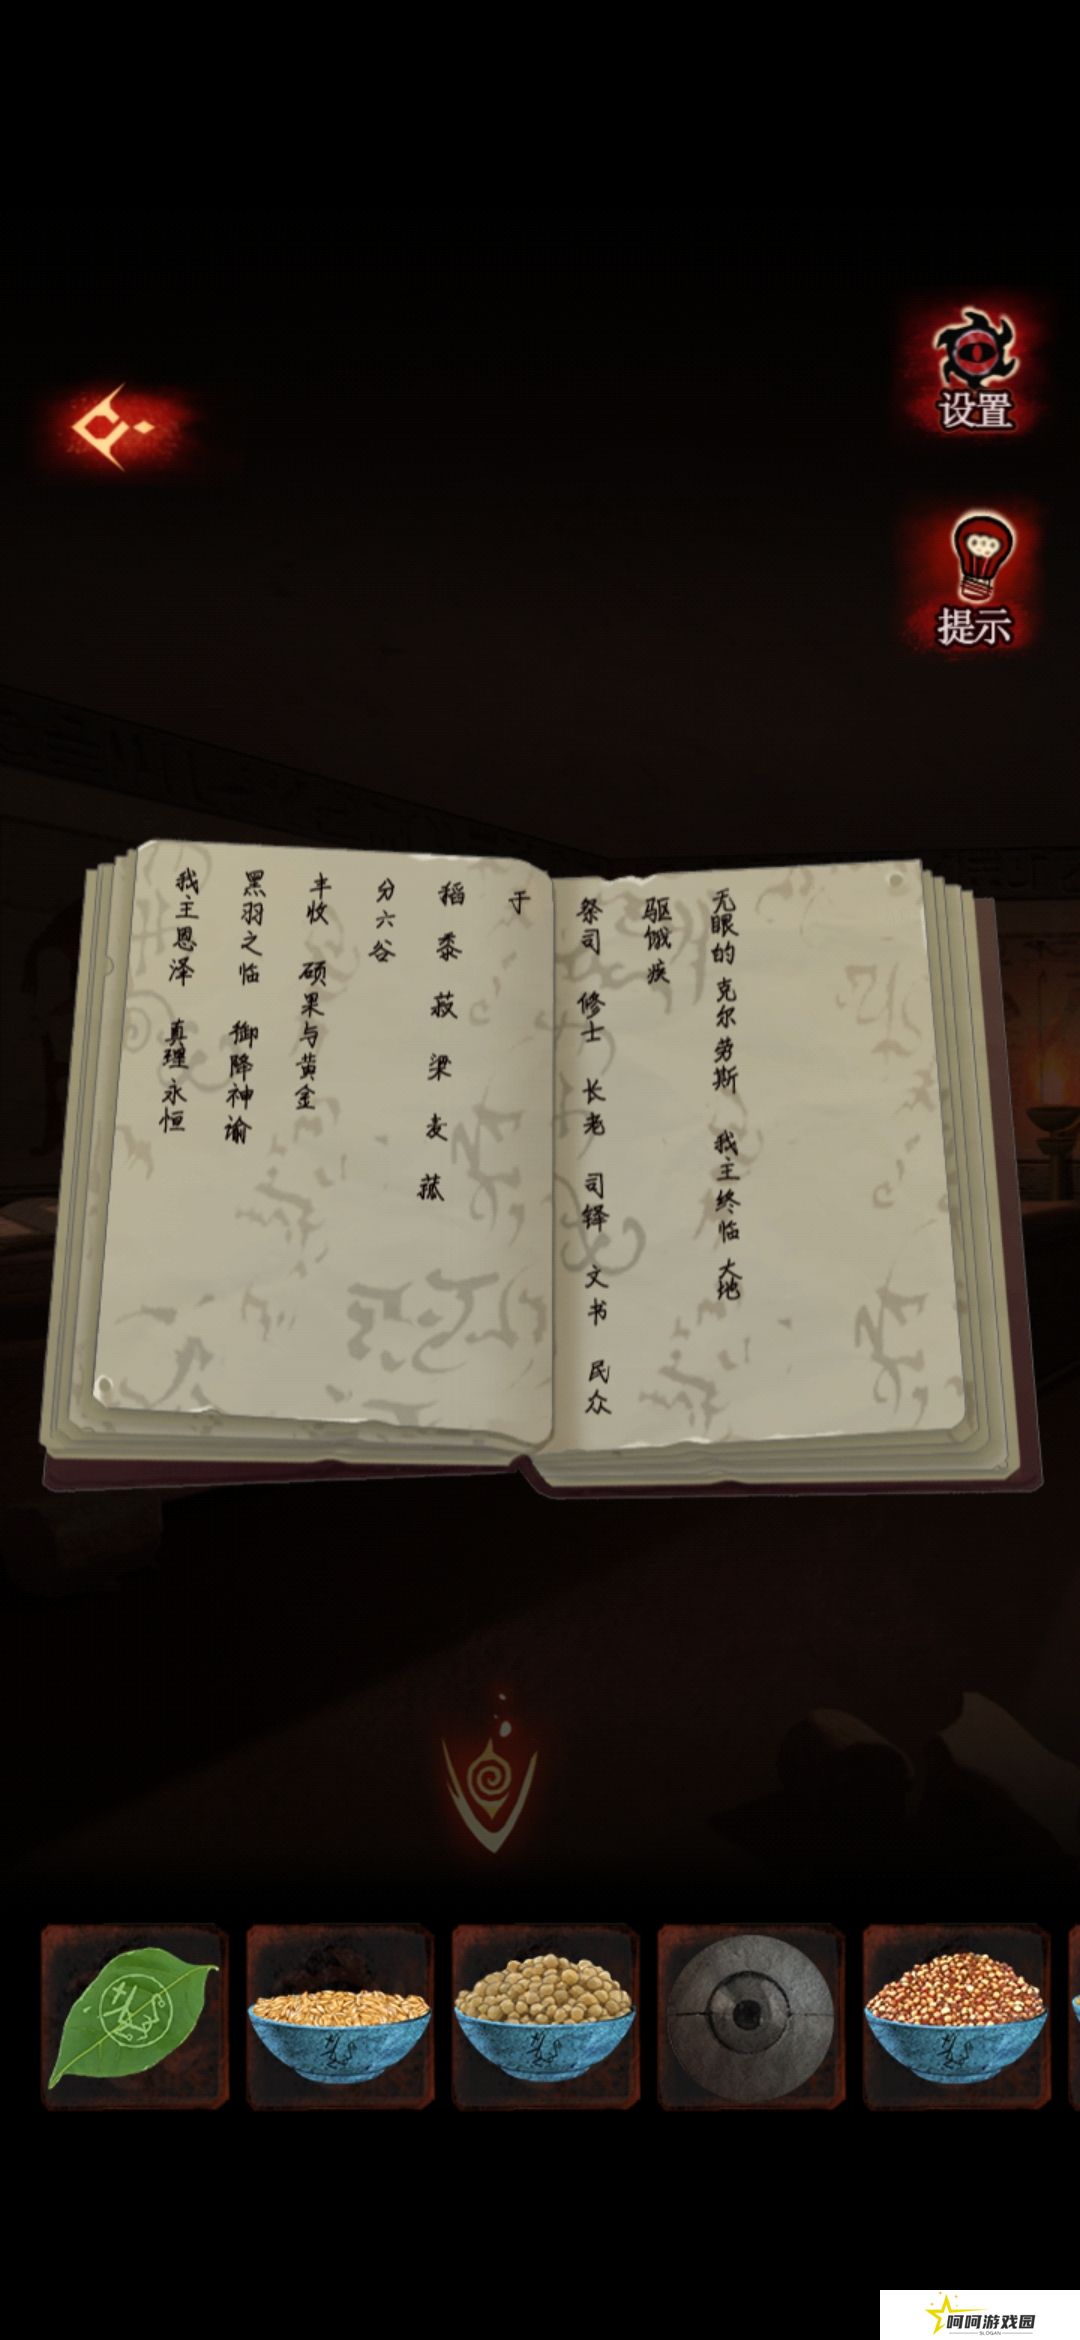 设置
提示
我主恩泽 真理永恒
黑羽之临 御降神谕
丰收 硕果与黄金
分六谷
稻 黍 菽 粱 麦 菰
于
祭司 修士 长老 司铎 文书 民众
驱饿疾
无眼的 克尔劳斯 我主终临 大地
呵呵游戏园
SLOGAN